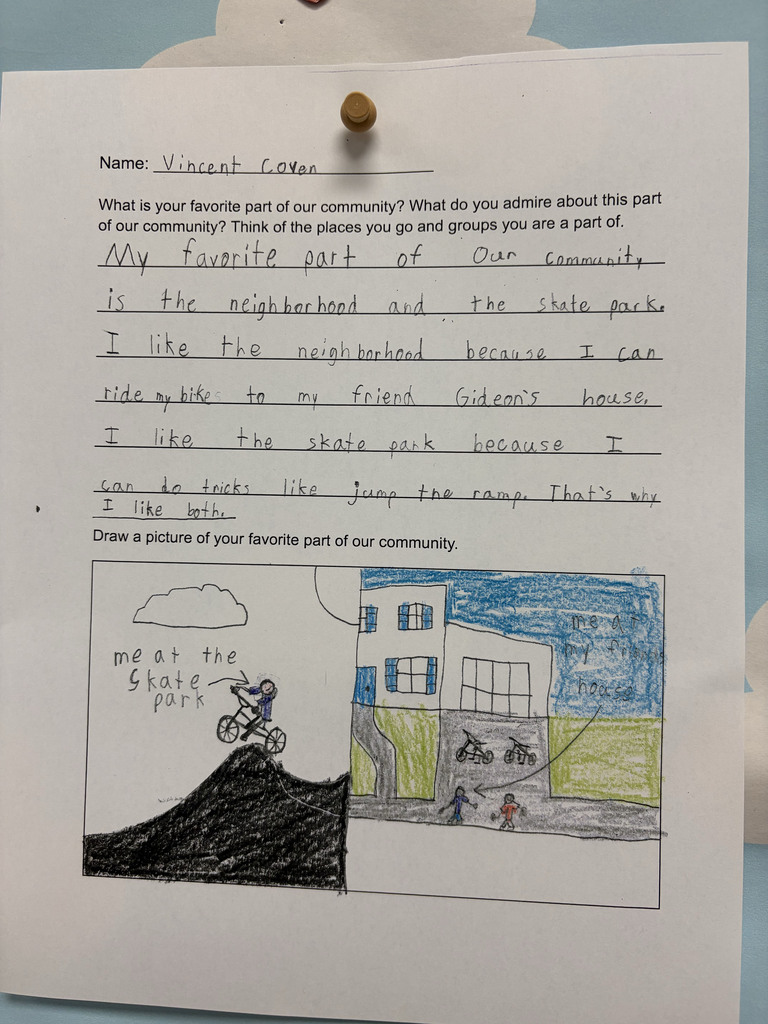 Name: Vincent Coven
What is your favorite part of our community? What do you admire about this part
of our community? Think of the places you go and groups you are a part of.
My favorite part of our community
is the neighborhood and the skate park.
I like the neighborhood because I can
ride my bike to my friend Gideon's house.
I like the skate park because I
can do tricks like jump the ramp. That's why
I like both.
Draw a picture of your favorite part of our community.
me at the
skate
park
me at
my friends
house